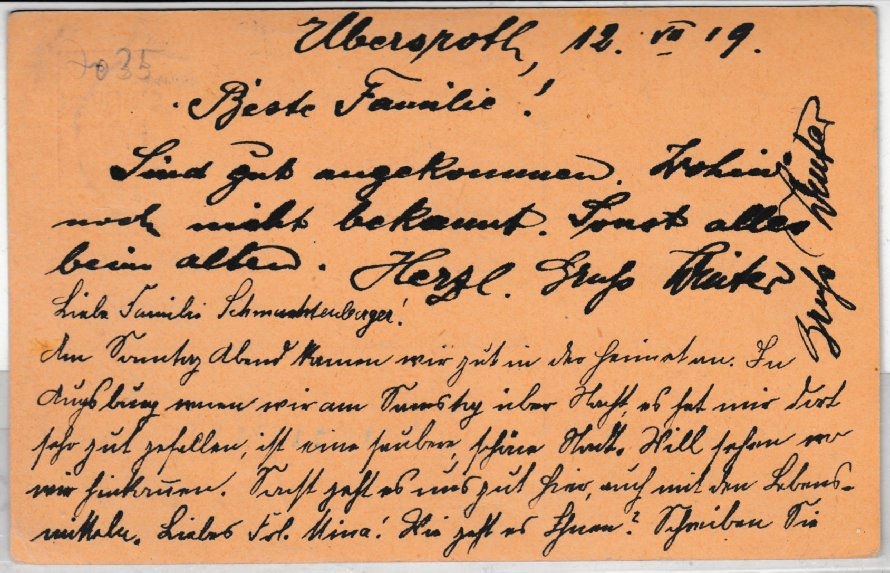 Ubersroth, 12. VII 19.
7035
Beste Familie!
Sind gut angekommen. Wohin
noch nicht bekannt. Sonst alles
beim alten. Herzl. Gruß Winter
Gruß Winter
Liebe Familie Schmachtenberger!
Am Sonntag Abend kamen wir gut in der Heimat an. In
Augsburg waren wir am Samstag über Nacht, es hat mir dort
sehr gut gefallen, ist eine saubere, schöne Stadt. Will sehen wo
wir hinkommen. Sonst geht es uns gut hier, auch mit den Lebens-
mitteln. Liebes Frl. Mina! Wie geht es Ihnen? Schreiben Sie